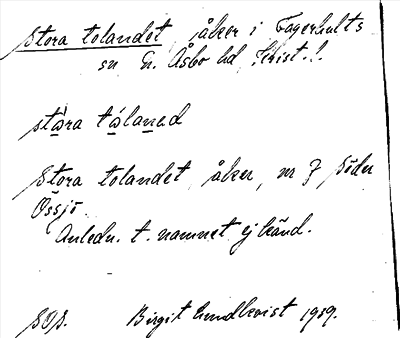 Stora tolandet, åker i Fagerhults
sn N. Åsbo hd Krist. l.
stɷra tɷ́laned
Stora tolandet, åker, nr 7 Söder
Össjö.
Anledn. t. namnet ej känd.
Birgit Lundkvist 1929.